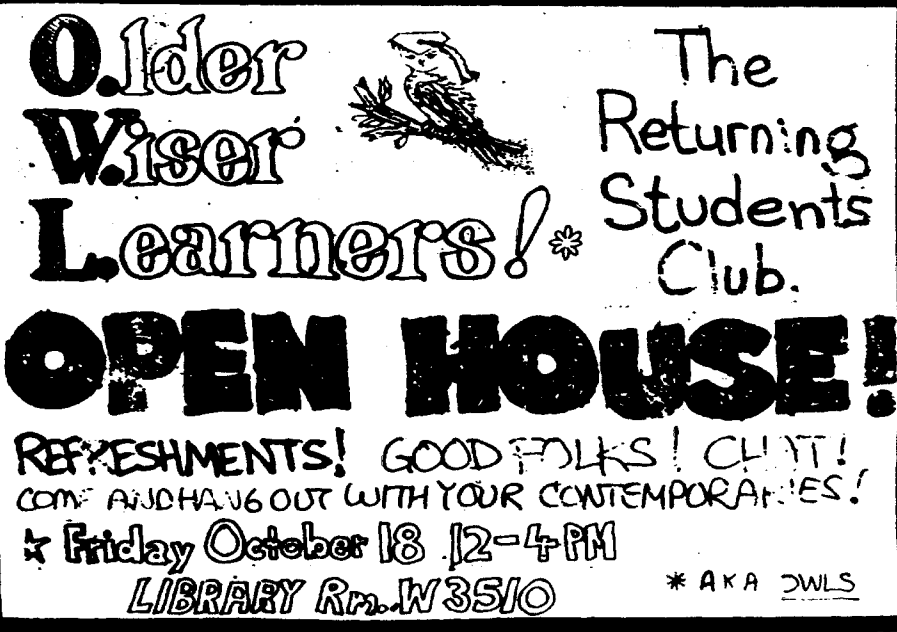 O.lder
W.iser
L.earners!*
The
Returning
Students
Club.
OPEN HOUSE!
REFRESHMENTS! GOOD FOLKS! CHAT!
COME AND HANG OUT WITH YOUR CONTEMPORARIES!
Friday October 18 12-4 PM
LIBRARY Rm. W3510
* AKA OWLS